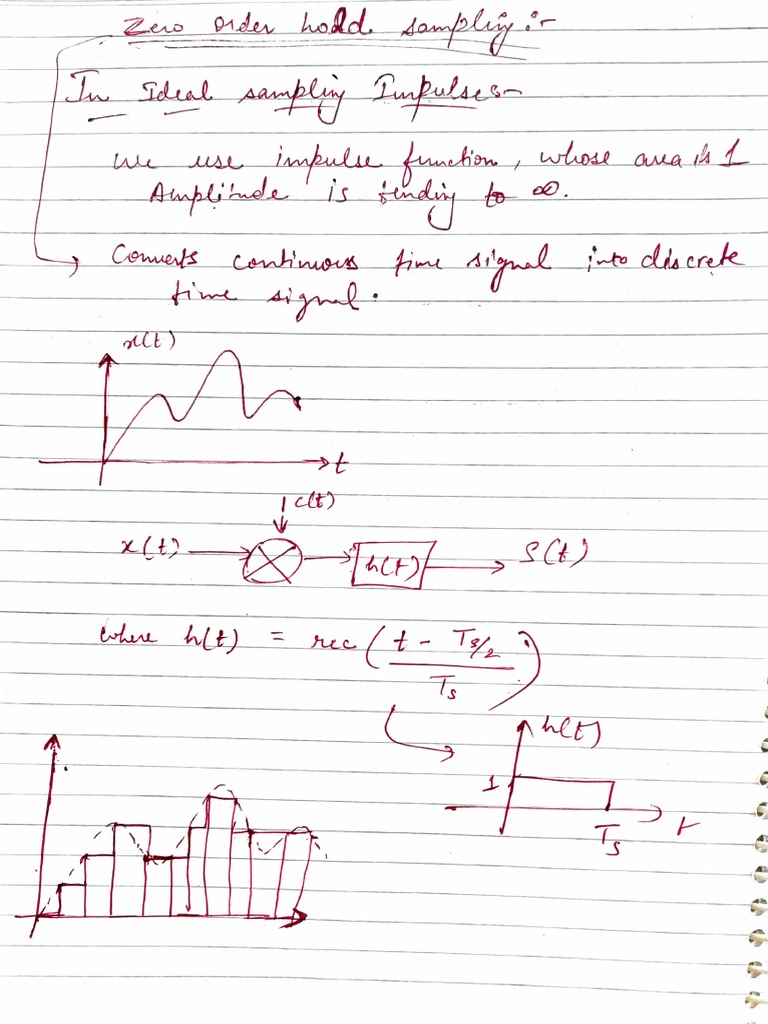 Zero order hold sampling :-
In Ideal sampling Impulses-
we use impulse function, whose area is 1
Amplitude is tending to ∞.
Converts continuous time signal into discrete
time signal.
x(t)
t
c(t)
x(t) h(t) S(t)
where h(t) = rec ( t - Ts/2 / Ts )
h(t)
1
Ts t